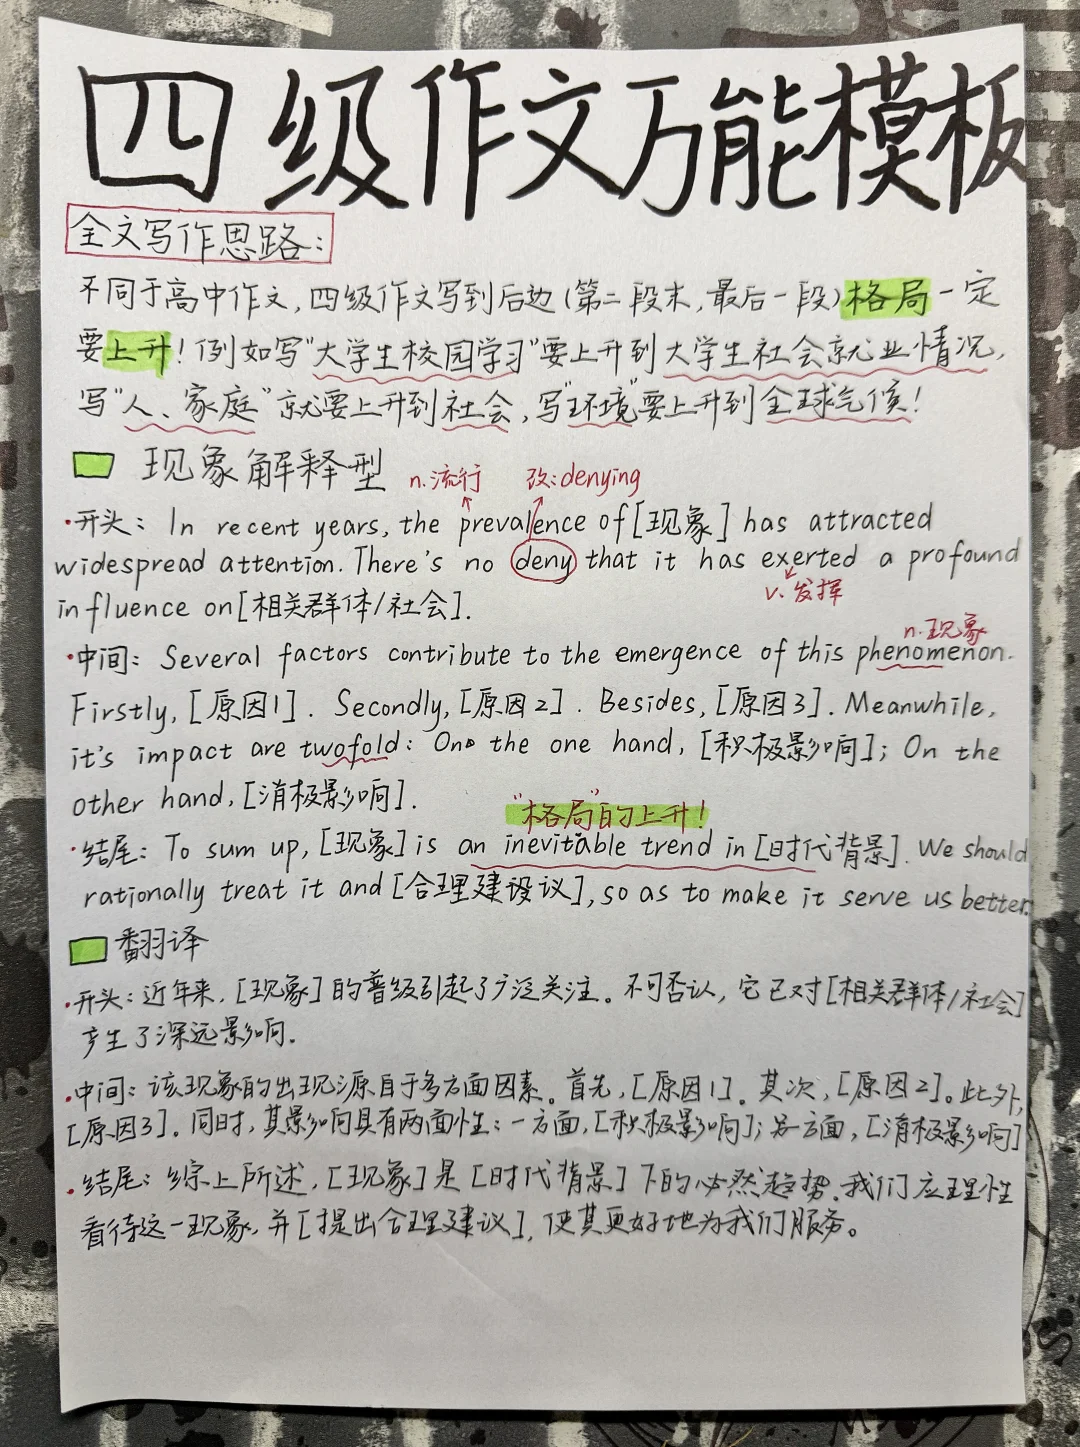 四级作文万能模板
全文写作思路:
不同于高中作文,四级作文写到后边(第二段末,最后一段)格局一定
要上升!例如写"大学生校园学习"要上升到大学生社会就业情况,
写"人、家庭"就要上升到社会,写"环境"要上升到全球气候!
现象解释型 n.流行 改:denying
·开头: In recent years, the prevalence of [现象] has attracted
widespread attention. There's no deny that it has exerted a profound
v.发挥
influence on [相关群体/社会].
n.现象
·中间: Several factors contribute to the emergence of this phenomenon.
Firstly, [原因1]. Secondly, [原因2]. Besides, [原因3]. Meanwhile,
it's impact are twofold: On the one hand, [积极影响]; On the
other hand, [消极影响].
"格局"的上升!
·结尾: To sum up, [现象] is an inevitable trend in [时代背景]. We should
rationally treat it and [合理建议], so as to make it serve us better.
翻译
·开头: 近年来, [现象] 的普级引起了广泛关注。不可否认, 它已对[相关群体/社会]
产生了深远影响.
·中间: 该现象的出现源自于多方面因素。首先, [原因1]. 其次, [原因2]。此外,
[原因3]. 同时, 其影响具有两面性: 一方面, [积极影响]; 另方面, [消极影响]
·结尾: 综上所述, [现象] 是 [时代背景] 下的必然趋势. 我们应理性
看待这一现象, 并[提出合理建议], 使其更好地为我们服务。